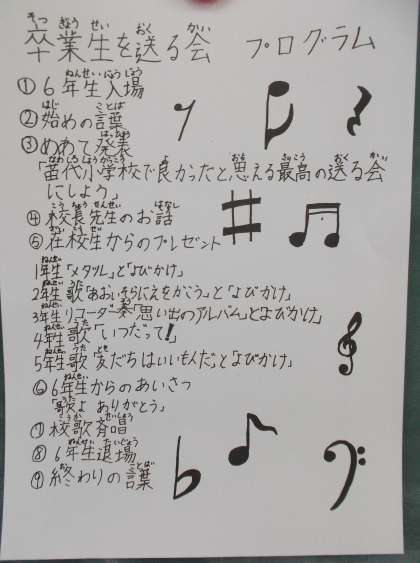 卒業生を送る会 プログラム
①6年生入場
②始めの言葉
③めあて発表
「苗代小学校で良かったと思える最高の送る会
にしよう」
④校長先生のお話
⑤在校生からのプレゼント
1年生「メダル」と「よびかけ」
2年生 歌「あおいそらにえをかこう」と「よびかけ」
3年生 リコーダー奏「思い出のアルバム」とよびかけ」
4年生 歌「いつだって!」
5年生 歌「友だちはいいもんだ」とよびかけ」
⑥6年生からのあいさつ
「歌よ ありがとう」
⑦校歌斉唱
⑧6年生退場
⑨終わりの言葉